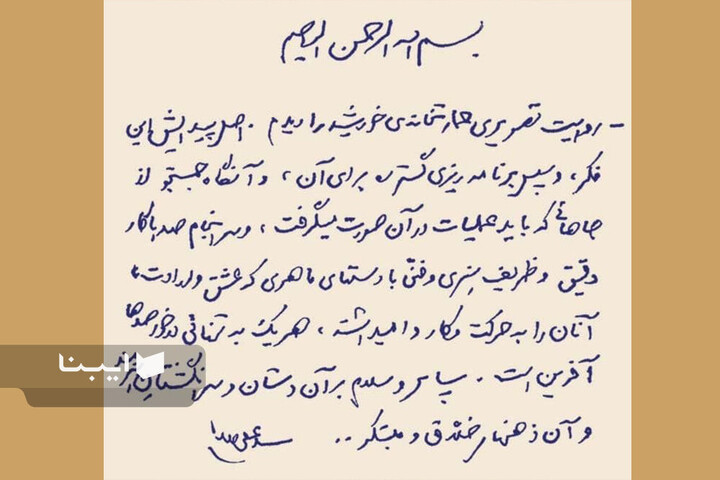 بسم الله الرحمن الرحیم
- روایت تصویری عمارتخانه‌ی خورشید را دیدم . اصل پیدایش این
فکر، و سپس برنامه ریزی گسترده برای آن ، و آنگاه جستجو از
جاهائی که باید عملیات در آن صورت میگرفت ، و سرانجام صدها کار
دقیق و ظریف هنری و فنی با دستهای ماهری که عشق و ارادت ،
آنان را به حرکت و کار وامیداشته ، هر یک به تنهائی درخور صدها
آفرین است . سپاس و سلام بر آن دستان و سرانگشتان
و آن ذهنهای خلاق و مبتکر ..
ایبنا